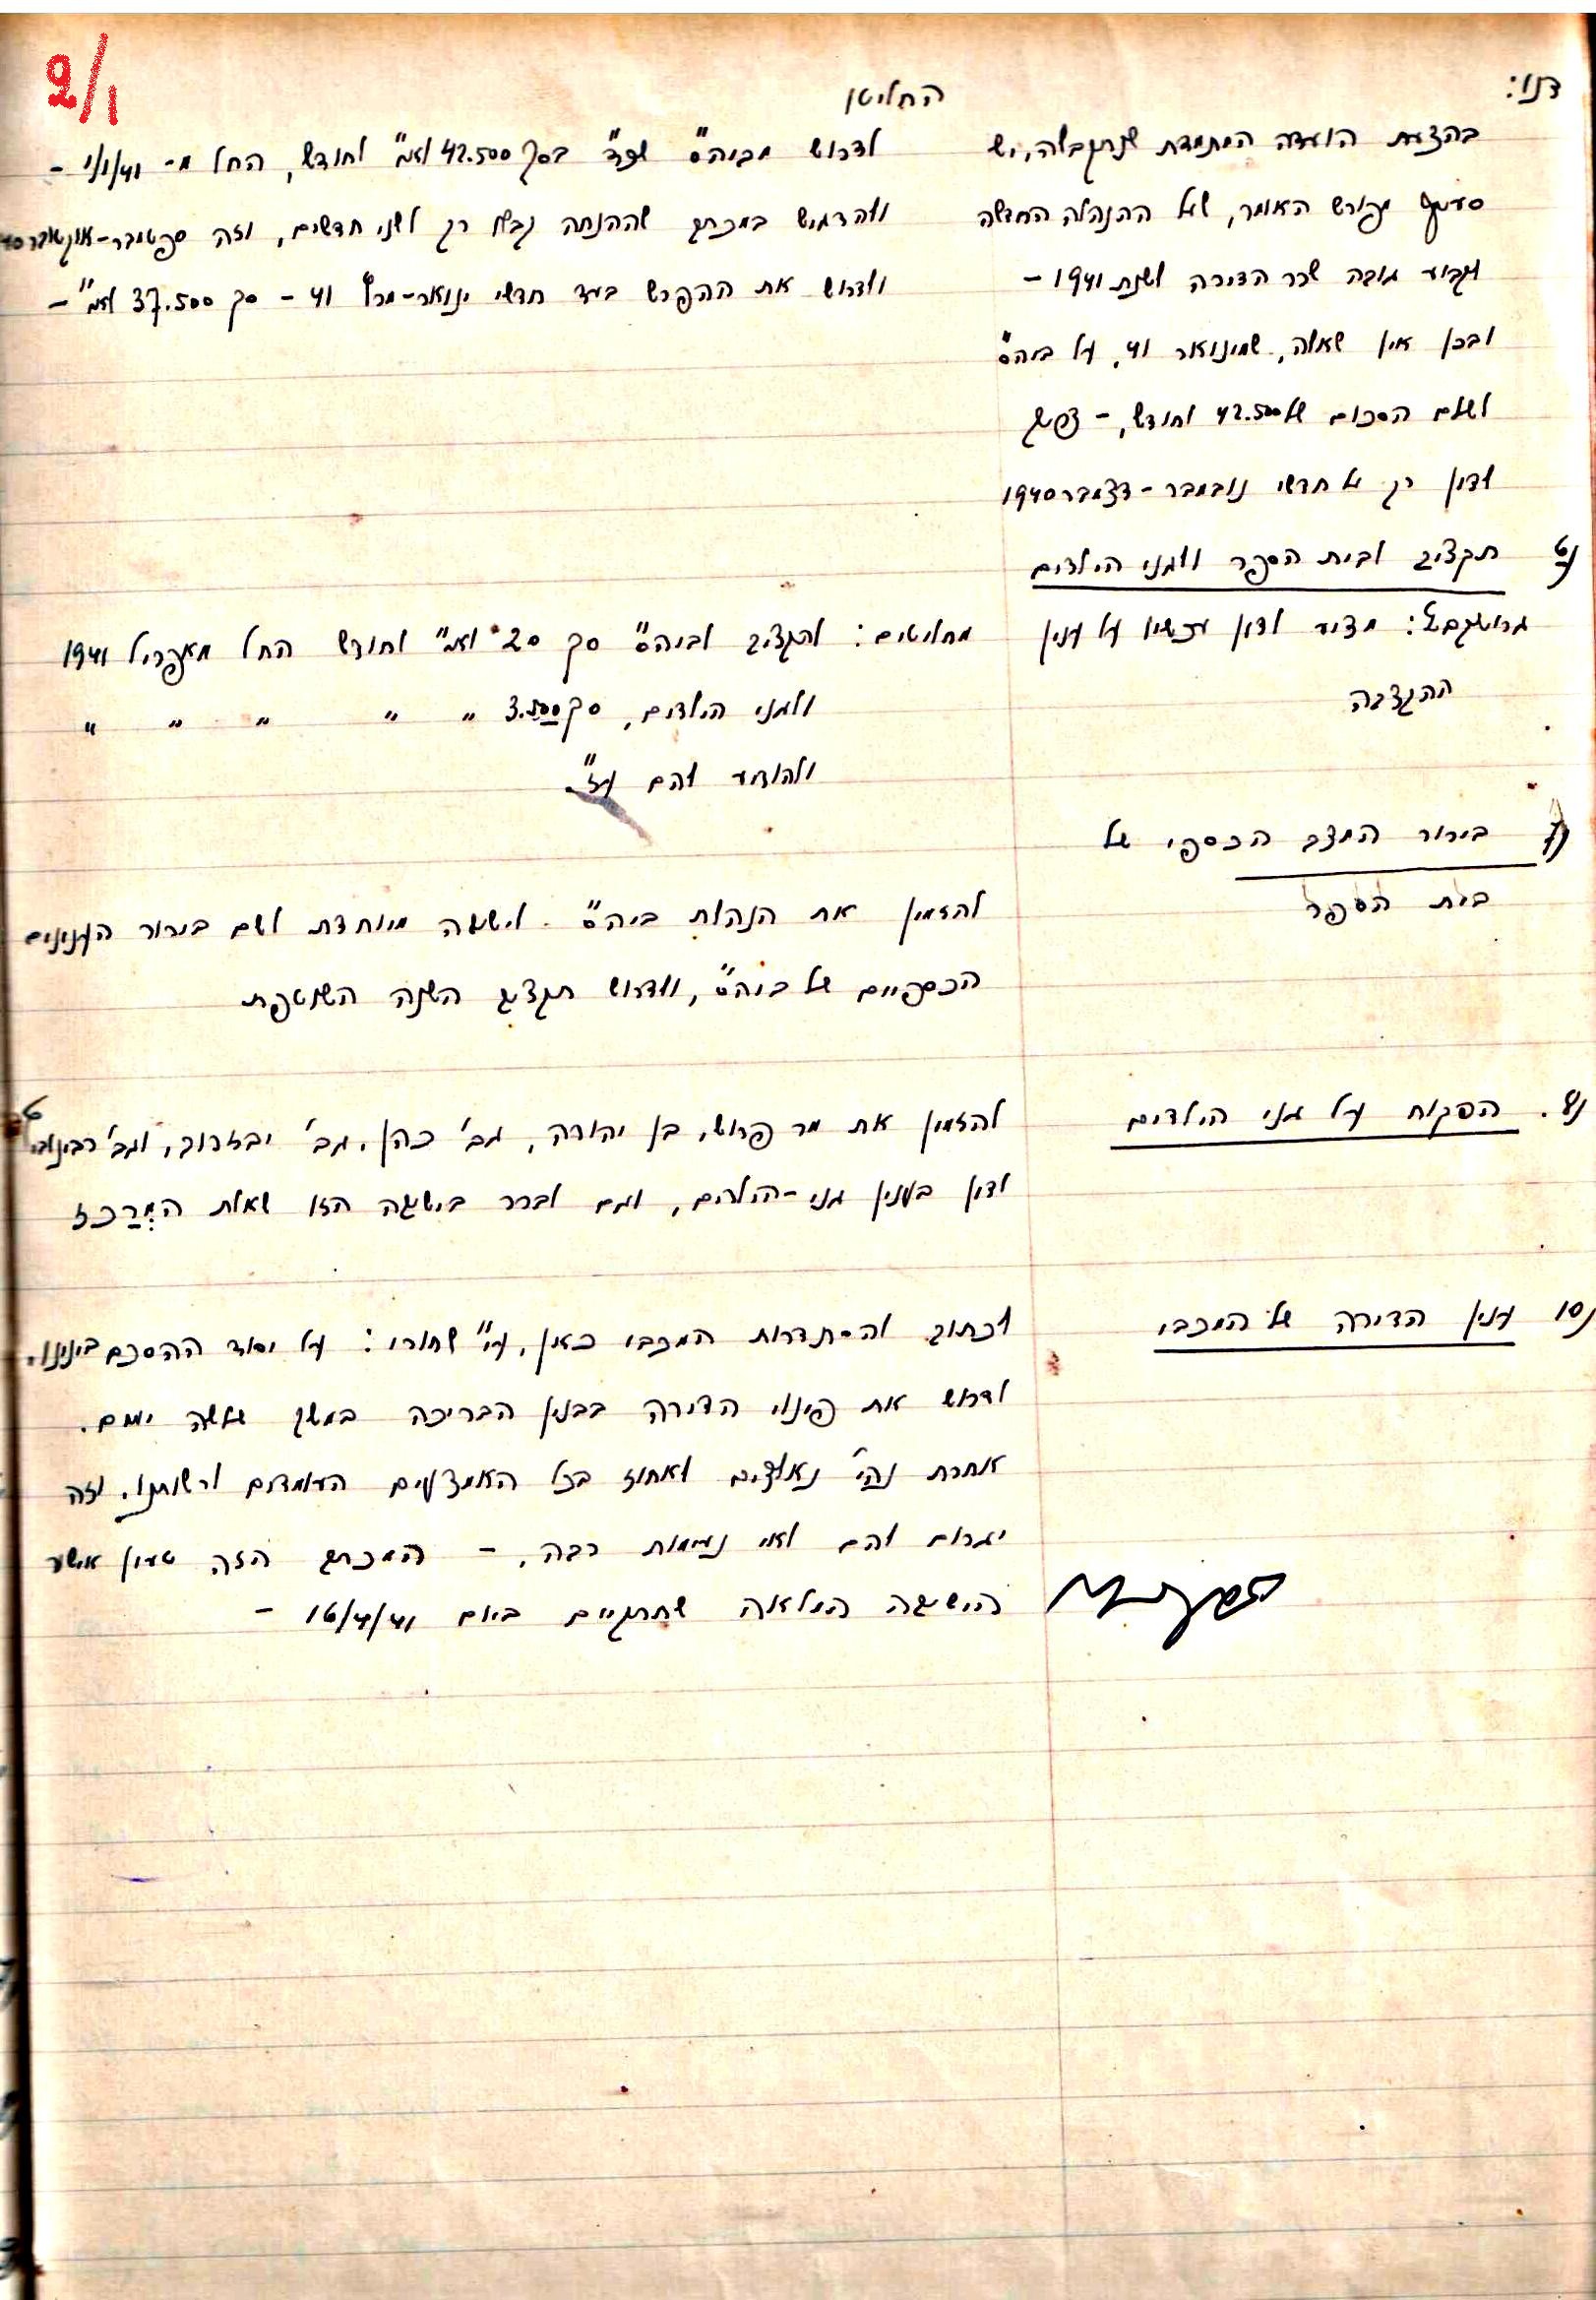 2/1
דנו:
בהצעת הועדה המתמדת שנתקבלה, יש
סעיף מפורש האומר, שעל ההנהלה החדשה
לקבוע גובה שכר הדירה לשנת 1941 -
ובכן אין שאלה, שמינואר 41, על ביה"ס
לשלם הסכום של 42.500 לחודש, -
לדון רק על חדשי נובמבר - דצמבר 1940
החליטו
לדרוש מביה"ס שכ"ד בסך 42.500 לא"י לחודש, החל מ- 1/1/41 -
ולהדגיש במכתב שההנחה נתנה רק לשני חדשים, וזה ספטמבר-אוקטובר 40
ולדרוש את ההפרש בעד חדשי ינואר-מרץ 41 - סך 37.500 לא"י -
תקציב לבית הספר ולגני הילדים
מציע לדון עכשיו על ענין
ההקצבה
מחליטים: להקציב לביה"ס סך 20 לא"י לחודש החל מאפריל 1941
ולגני הילדים, סך 3.500 " " " " "
ולהודיע להם ע"ז.
בירור המצב הכספי של
בית הספר
להזמין את הנהלת ביה"ס לישיבה מיוחדת לשם בירור הענינים
הכספיים של ביה"ס, ולדרוש תקציב השנה השוטפת
הפקוח על גני הילדים
להזמין את מר פרוש, בן יהודה, גב' כהן, גב' יבזרוב, וגב' רבינוביץ
לדון בענין גני-הילדים, וגם לברר בישיבה הזו שאלת המְרַכז
ענין הדירה של המכבי
לכתוב להסתדרות המכבי כאן, ע"י שחורי: על יסוד ההסכם בינינו,
לדרוש את פינוי הדירה בבנין הבריכה במשך שלשה ימים.
אחרת נהי' נאלצים לאחוז בכל האמצעים העומדים לרשותנו. וזה
יגרום להם לאי נעימות רבה. - המכתב הזה טעון אישור
הישיבה המלאה שתתקיים ביום 16/4/41 -